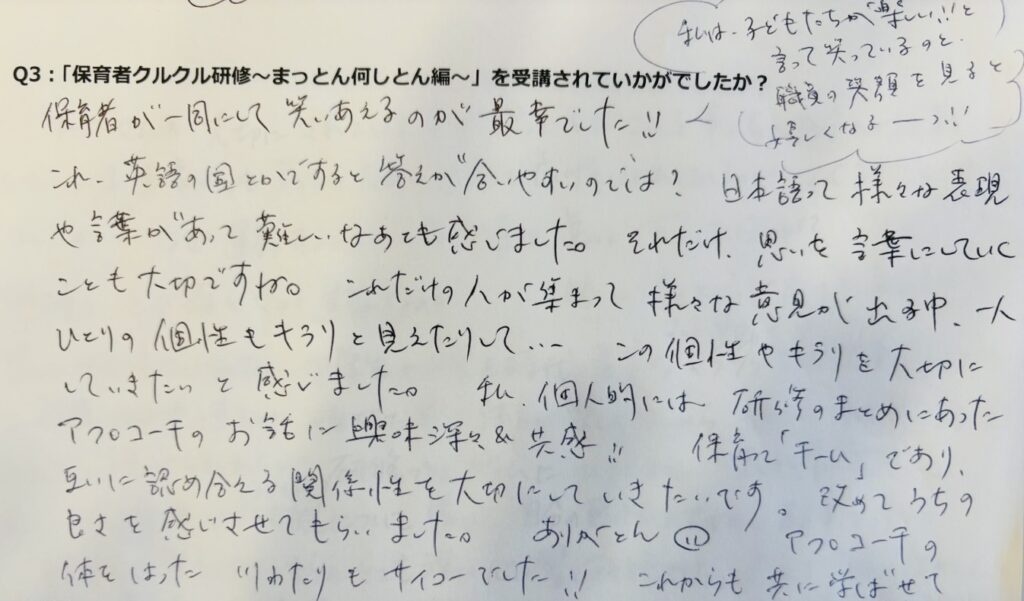 私は、子どもたちが「楽しい!!」と
言って笑っているのと、
職員の笑顔を見ると
嬉しくなるーっ!!
Q3:「保育者クルクル研修～まっとん何しとん編～」を受講されていかがでしたか?
保育者が一同にして笑いあえるのが最幸でした!!
これ、英語の国とかですると答えが合いやすいのでは? 日本語って様々な表現
や言葉があって難しいなあとも感じました。それだけ、思いを言葉にしていく
ことも大切ですね。これだけの人が集まって様々な意見が出る中、一人
ひとりの個性もキラリと見えたりして… この個性やキラリを大切に
していきたいと感じました。私、個人的には研修のまとめにあった
アフロコーチのお話に興味深々&共感!! 保育って「チーム」であり、
互いに認め合える関係性を大切にしていきたいです。改めてうちの
良さを感じさせてもらいました。ありがとん アフロコーチの
体をはった川わたりもサイコーでした!! これからも共に学ばせて